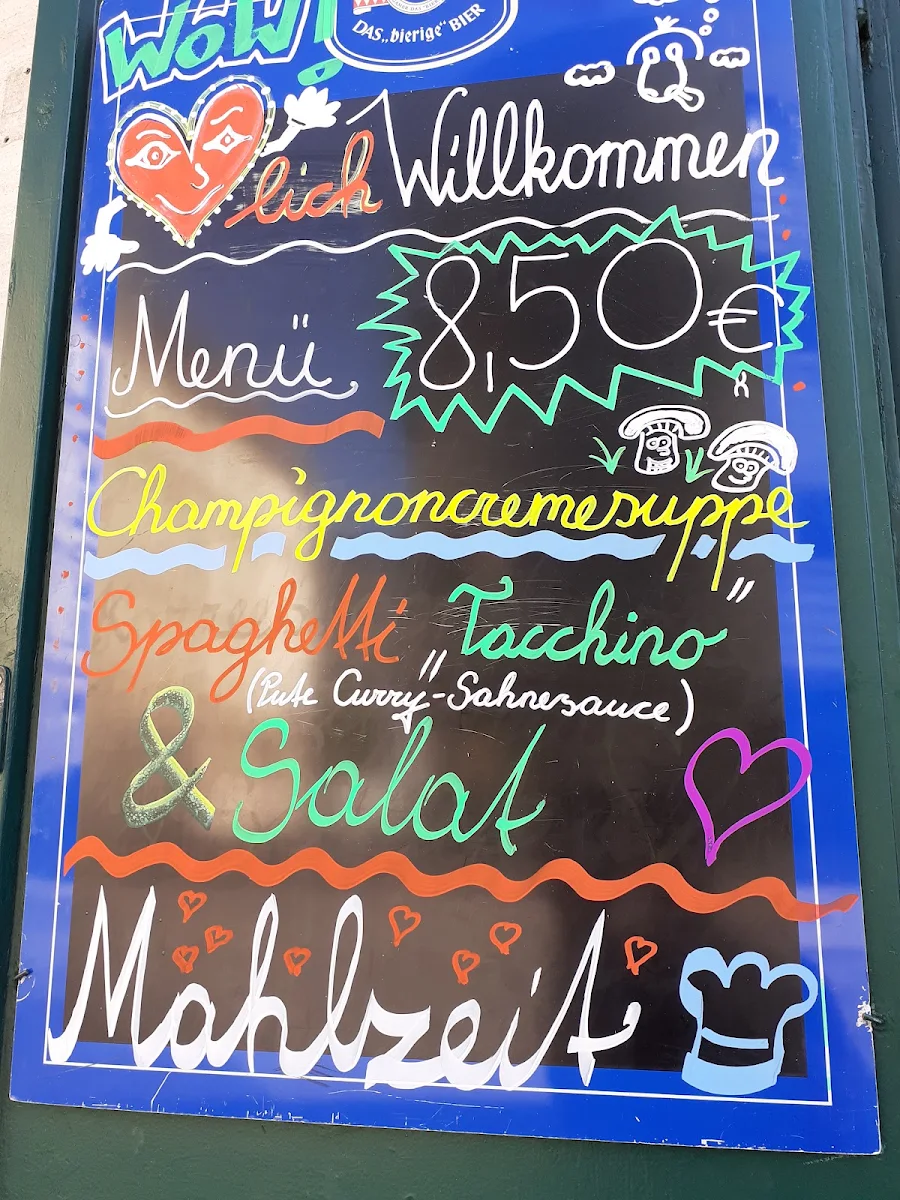 WOW!
DAS „bierige“ BIER
lich Willkommen
Menü 8,50€
Champignoncremesuppe
Spaghetti "Tacchino"
(Pute Curry-Sahnesauce)
& Salat
Mahlzeit